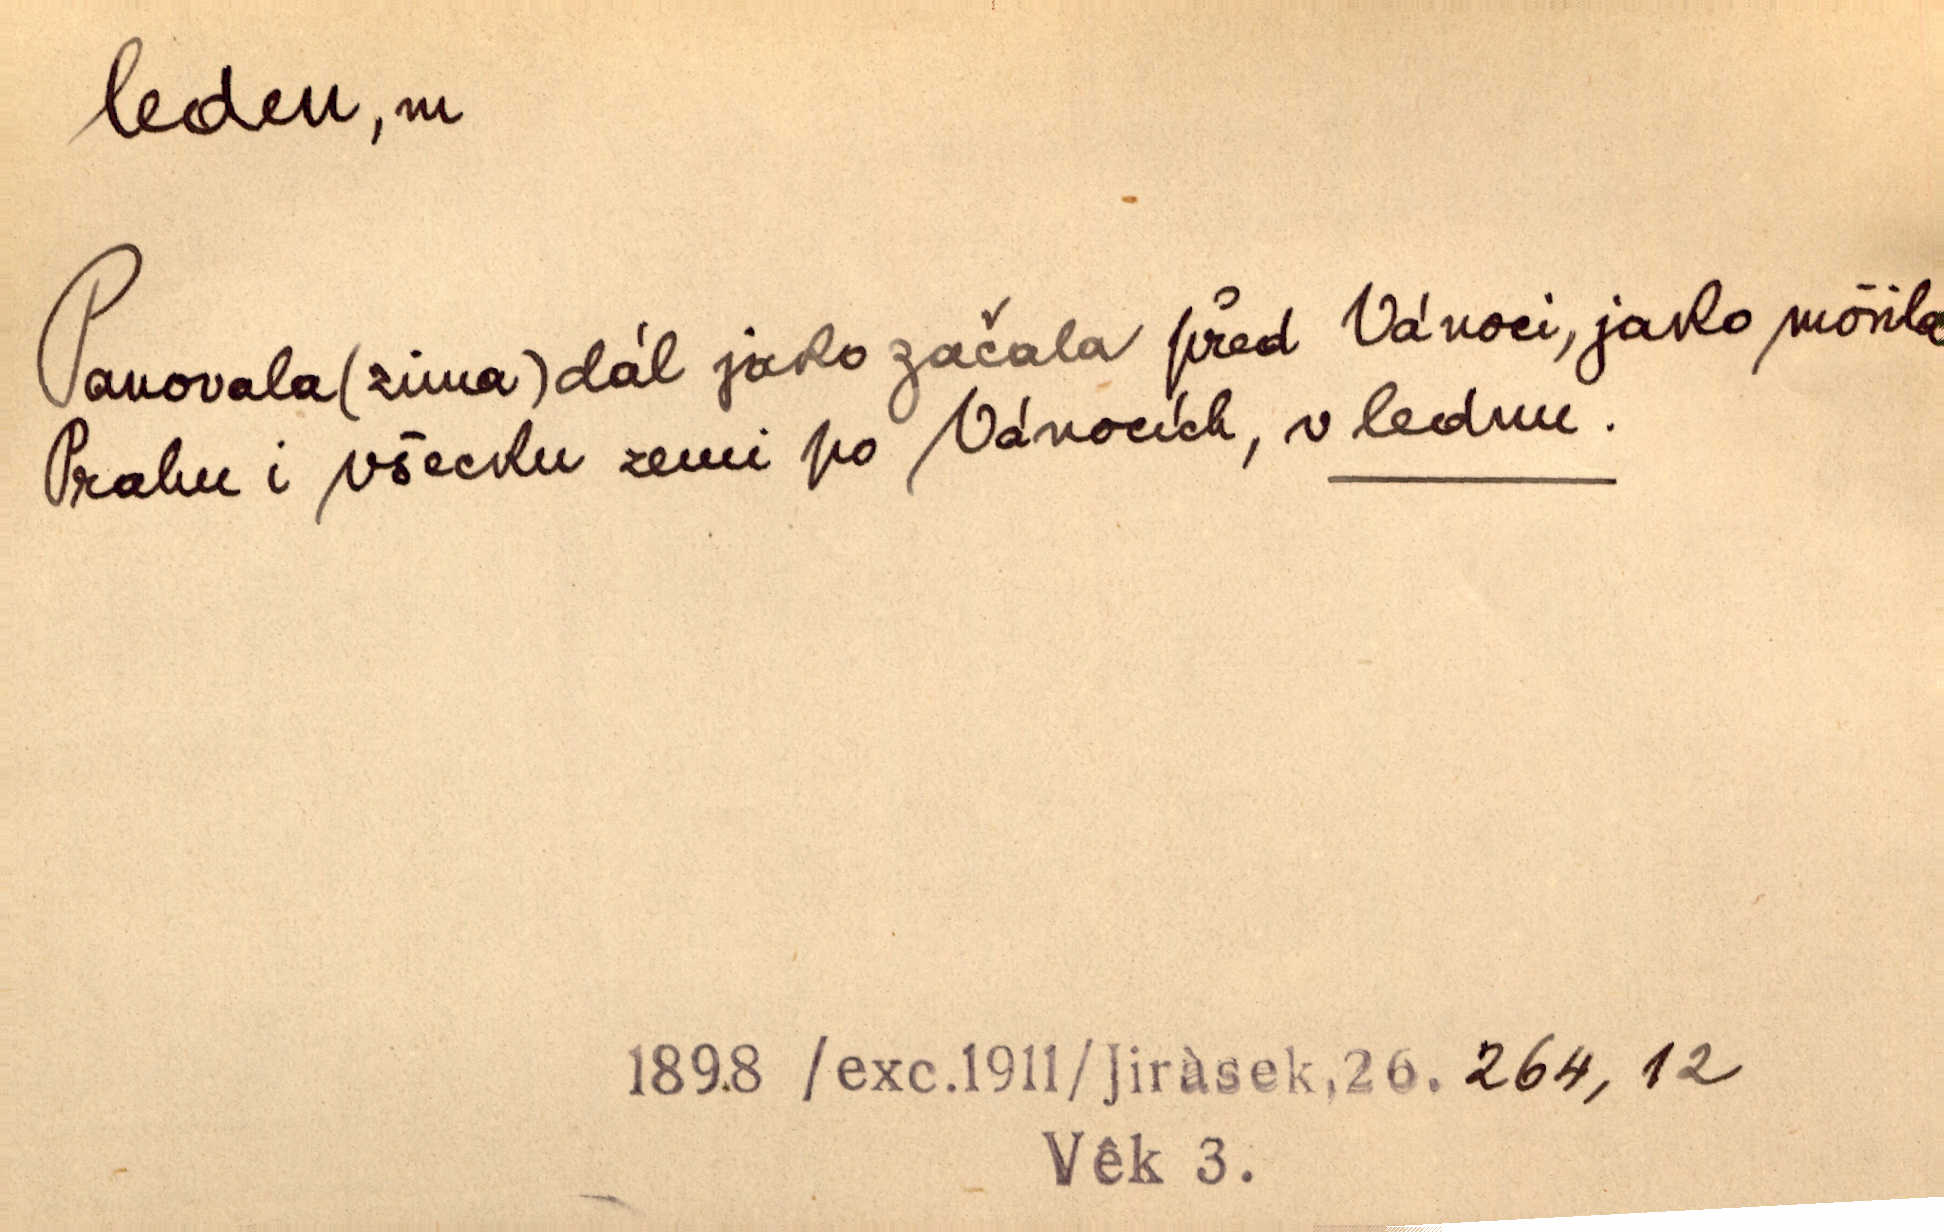 leden, m
Panovala (zima) dál jako začala před Vánoci, jako mořila
Prahu i všecku zemi po Vánocích, v lednu.
1898 /exc.1911/Jiràsek,26. 264, 12
Vêk 3.